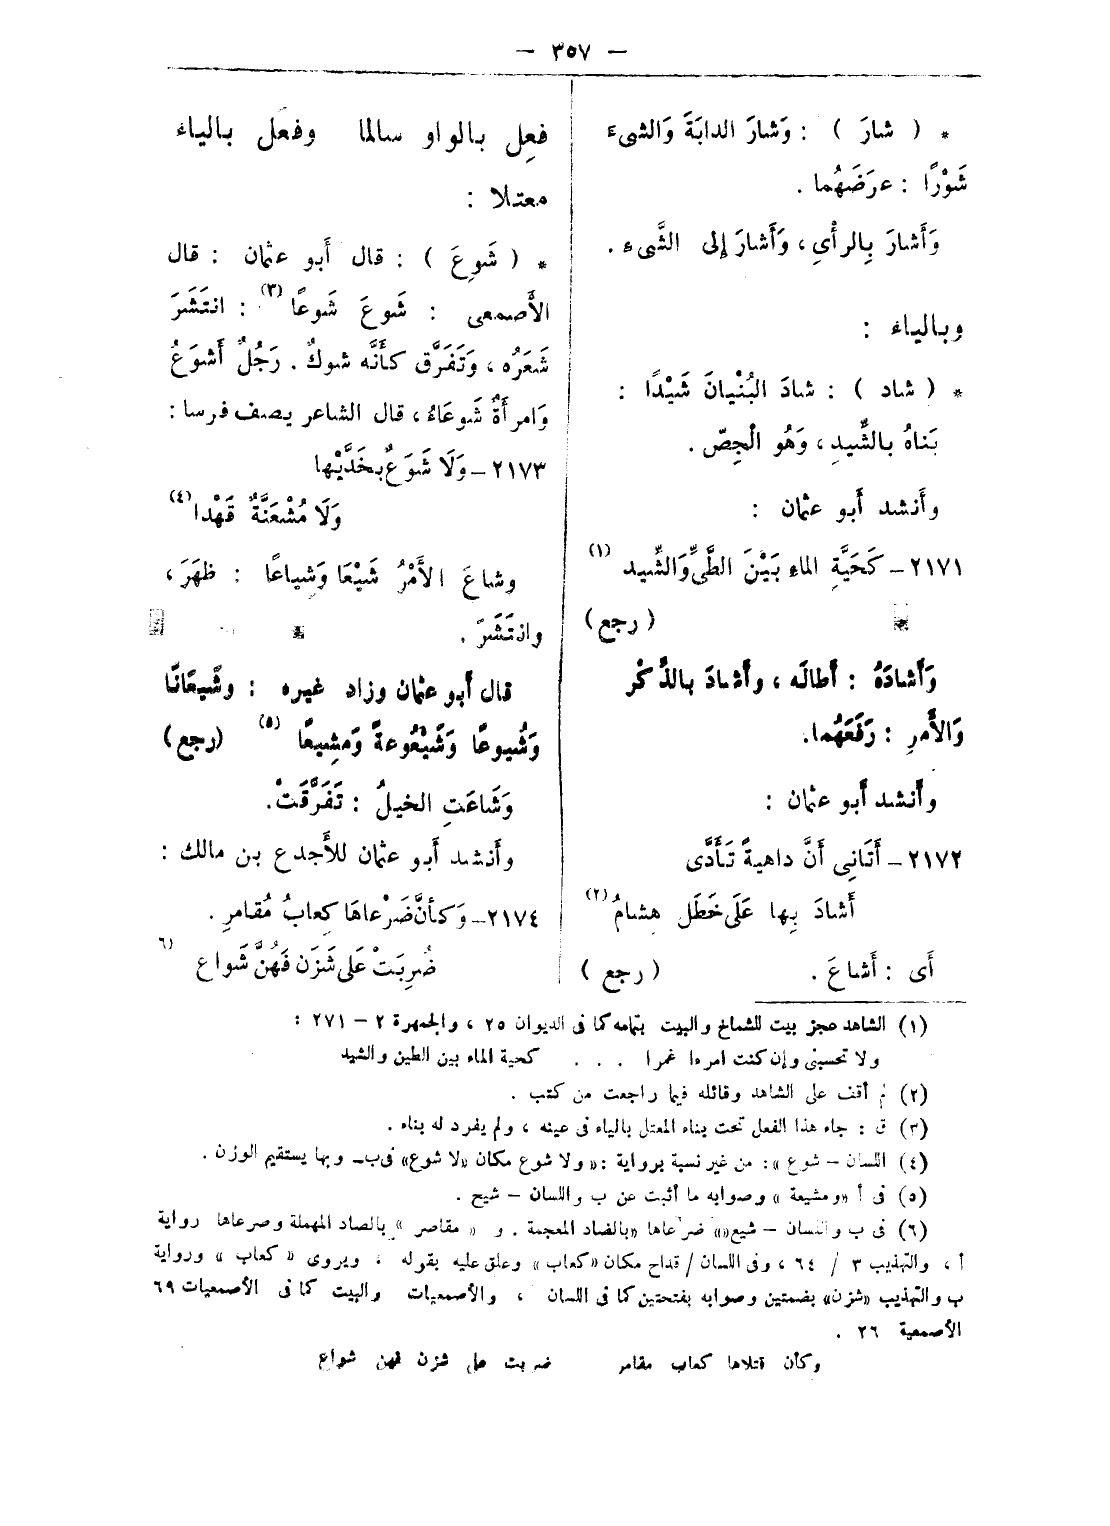 — ٣٥٧ —
* ( شارَ ) : وَشارَ الدابَةَ وَالشىءَ
شَوْرًا : عرَضَهُما .
وَأَشارَ بِالرأْىِ ، وَأَشارَ إلى الشَّىءِ .
وبالياء :
* ( شاد ) : شادَ البُنْيانَ شَيْدًا :
بَناهُ بالشِّيدِ ، وَهُو الْجِصّ .
وأنشد أبو عثمان :
٢١٧١ – كَحَيَّةِ الماءِ بَيْنَ الطَّىِّ وَالشِّيد (١)
( رجع )
وَأَشادَهُ : أَطالَه ، وأَشادَ بالذَّكْر
وَالأَمرِ : رَفَعَهُما.
وأنشد أبو عثمان :
٢١٧٢ – أَتَانِى أَنَّ داهيةً تَأَدَّى
أَشادَ بِها عَلَى خَطَل هِشامُ (٢)
أى : أَشاعَ . ( رجع )
فعِل بالواو سالما وفعَل بالياء
معتلا :
* ( شَوِعَ ) : قال أَبو عثمان : قال
الأَصمعى : شَوعَ شَوعًا (٣) : انتَشَرَ
شَعَرُه ، وَتَفَرَّق كأَنَّه شوكٌ . رَجُلٌ أَشوَعُ
وَامرأَةٌ شَوعَاءُ ، قال الشاعر يصف فرسا :
٢١٧٣ – وَلَا شَوَعٌ بخَدَّيْها
وَلَا مُشْعَنَّةٌ قَهْدا (٤)
وشاعَ الأَمْرُ شَيْعًا وَشِياعًا : ظهَرَ ،
وانتَشَرَ .
قال أبو عثمان وزاد غيره : وشَيعَانًا
وَشُيوعًا وَشَيْعُوعةً وَمَشِيعًا (٥) (رجع)
وَشَاعَتِ الخيلُ : تَفَرَّقَتْ.
وأَنشد أبو عثمان للأَجدع بن مالك :
٢١٧٤ – وَكأنَّ ضَرْعاهَا كِعابُ مُقامرِ .
ضُرِبَتْ عَلى شَزَن فَهُنَّ شَواع (٦)
(١) الشاهد عجز بيت للشماخ والبيت بتمامه كما فى الديوان ٢٥ ، والجمهرة ٢ – ٢٧١ :
ولا تحسبنى وإن كنت امرءا غمرا . . . كحية الماء بين الطين والشيد
(٢) لم أقف على الشاهد وقائله فيما راجعت من كتب .
(٣) ق : جاء هذا الفعل تحت بناء المعتل بالياء فى عينه ، ولم يفرد له بناء .
(٤) اللسان – شوع » : من غير نسبة برواية : « ولا شوع مكان «لا شوع» فى ب – وبها يستقيم الوزن .
(٥) فى أ «ومشيعة » وصوابه ما أثبت عن ب واللسان – شيح .
(٦) فى ب واللسان – شيع «» ضرعاها «بالضاد المعجمة . و « مقاصر » بالصاد المهملة وصرعاها رواية
أ ، والتهذيب ٣ / ٦٤ ، وفى اللسان / قداح مكان «كعاب» وعلق عليه بقوله : ويروى « كعاب » ورواية
ب والتهذيب «شزن» بضمتين وصوابه بفتحتين كما فى اللسان ، والأصمعيات والبيت كما فى الأصمعيات ٦٩
الأصمعية ٢٦ .
وكأن قتلاها كعاب مقامر ضربت على شزن فهن شواع